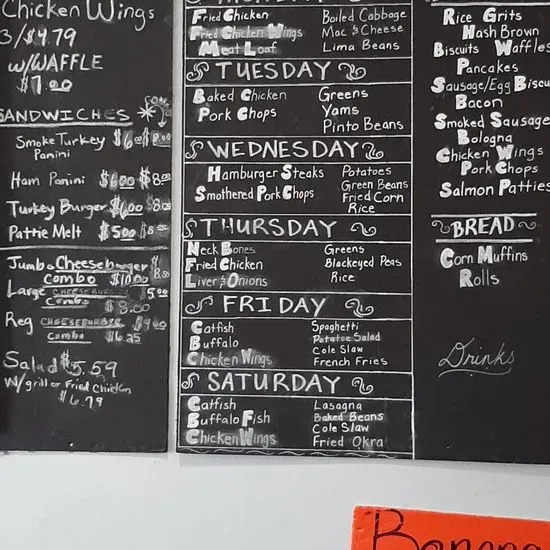 Chicken Wings
3/$4.79
w/WAFFLE
$7.00
SANDWICHES
Smoke Turkey $6 $8.00
Panini
Ham Panini $6.00 $8.00
Turkey Burger $6.00 $8.00
Pattie Melt $5.00 $8.00
Jumbo Cheeseburger $8.00
Combo $10.00
Large CHEESEBURGER $5.00
Combo $8.00
Reg CHEESEBURGER $4.00
Combo $6.25
Salad $5.59
W/grill or Fried Chicken
$6.79
MONDAY
Fried Chicken Boiled Cabbage
Fried Chicken Wings Mac & Cheese
Meat Loaf Lima Beans
TUESDAY
Baked Chicken Greens
Pork Chops Yams
Pinto Beans
WEDNESDAY
Hamburger Steaks Potatoes
Smothered Pork Chops Green Beans
Fried Corn
Rice
THURSDAY
Neck Bones Greens
Fried Chicken Blackeyed Peas
Liver & Onions Rice
FRIDAY
Catfish Spaghetti
Buffalo Potatoe Salad
Chicken Wings Cole Slaw
French Fries
SATURDAY
Catfish Lasagna
Buffalo Fish Baked Beans
Chicken Wings Cole Slaw
Fried Okra
Rice Grits
Hash Brown
Biscuits Waffles
Pancakes
Sausage/Egg Biscu
Bacon
Smoked Sausage
Bologna
Chicken Wings
Pork Chops
Salmon Patties
BREAD
Corn Muffins
Rolls
Drinks
Banana